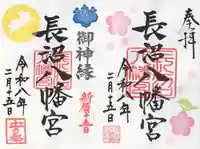 奉拝
長沼八幡宮
令和八年
二月十五日
御神縁
新月十五日
長沼八幡宮
令和八年
二月十五日